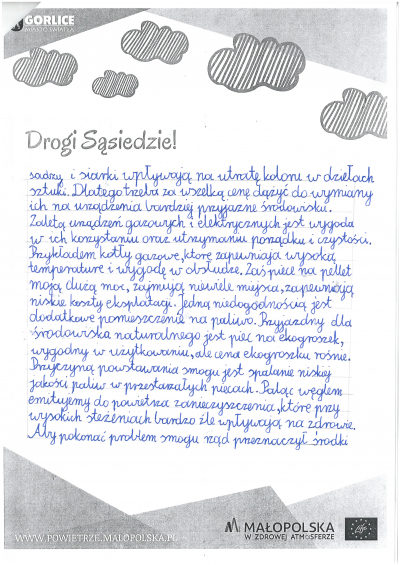 GORLICE
MIASTO ŚWIATŁA
Drogi Sąsiedzie!
sadzy i siarki wpływają na utratę koloru w dziełach
sztuki. Dlatego trzeba za wszelką cenę dążyć do wymiany
ich na urządzenia bardziej przyjazne środowisku.
Zaletą urządzeń gazowych i elektrycznych jest wygoda
w ich korzystaniu oraz utrzymaniu porządku i czystości.
Przykładem kotły gazowe, które zapewniają wysoką
temperaturę i wygodę w obsłudze. Zaś piece na pellet
mają dużą moc, zajmują niewiele miejsca, zapewniają
niskie koszty eksplatacji. Jedną niedogodnością jest
dodatkowe pomieszczenie na paliwo. Przyjazny dla
środowiska naturalnego jest piec na ekogroszek,
wygodny w użytkowaniu, ale cena ekogroszku rośnie.
Przyczyną powstawania smogu jest spalanie niskiej
jakości paliw w przestarzałych piecach. Paląc węglem
emitujemy do powietrza zanieczyszczenia, które przy
wysokich stężeniach bardzo źle wpływają na zdrowie.
Aby pokonać problem smogu rząd przeznaczył środki
WWW.POWIETRZE.MALOPOLSKA.PL
MAŁOPOLSKA
W ZDROWEJ ATMOSFERZE
Life